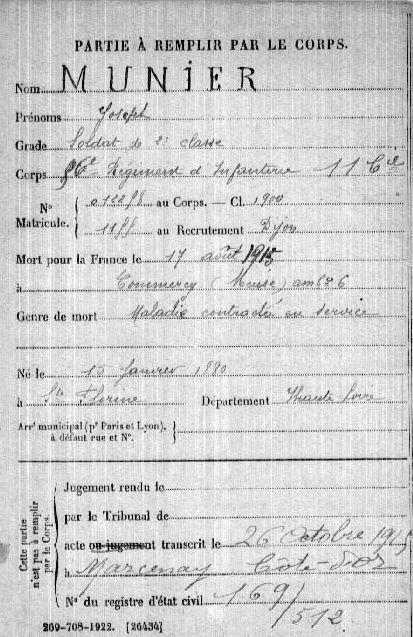 PARTIE À REMPLIR PAR LE CORPS.
Nom MUNIER
Prénoms Joseph
Grade Soldat de 2e classe
Corps Régiment d'Infanterie 11 Cie
N° Matricule. { 012288 au Corps. — Cl. 1900
1188 au Recrutement Dijon
Mort pour la France le 17 août 1915
à Commercy (Meuse) amb ce 6
Genre de mort Maladie contractée en service
Né le 15 Janvier 1880
à Ste Florine Département Haute Loire
Arrt municipal (pr Paris et Lyon), à défaut rue et N°. }
Cette partie n'est pas à remplir par le Corps.
Jugement rendu le
par le Tribunal de
acte ou jugement transcrit le 26 Octobre 1915
à Marcenay Côte-d'Or
N° du registre d'état civil 169/512
269-708-1922. [26434]